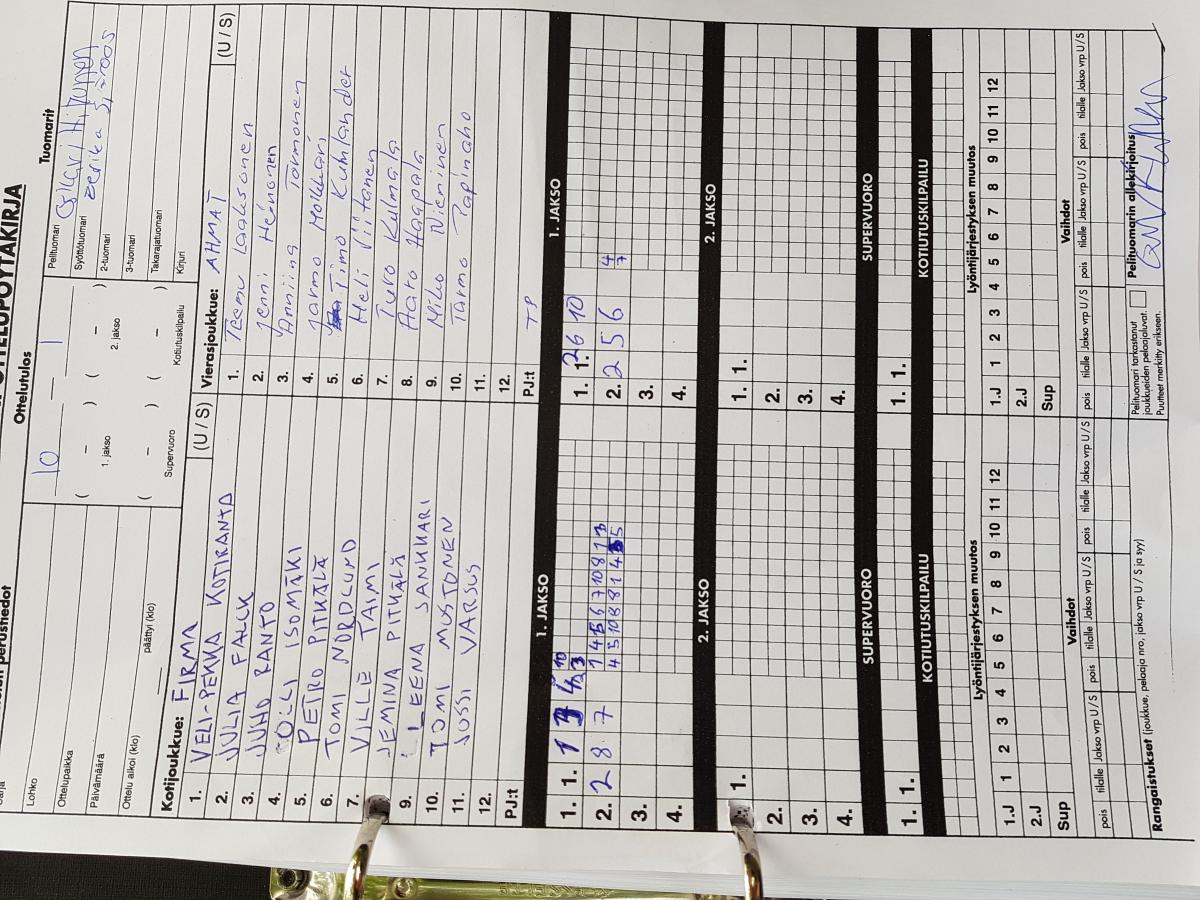 OTTELUPÖYTÄKIRJA
perustiedot
Lohko
Ottelupaikka
Päivämäärä
Ottelu alkoi (klo) päättyi (klo)
Ottelutulos
10 – 1
( – ) ( – )
1. jakso 2. jakso
( – ) ( – )
Supervuoro Kotiutuskilpailu
Tuomarit
Pelituomari
Syöttötuomari
2-tuomari
3-tuomari
Takarajatuomari
Kirjuri
Kotijoukkue: FIRMA (U / S)
1. VELI-PEKKA KOTIRANTA
2. JULIA FALCK
3. JUHO RANTO
4. OLLI ISOMÄKI
5. PETRO PITKÄLÄ
6. TOMI NORDLUND
7. VILLE TAIMI
JEMINA PITKÄLÄ
9. LEENA SANKKARI
10. TOMI MUSTONEN
11. JUSSI VARSUS
12.
PJ:t
Vierasjoukkue: AHMAT (U / S)
1. Teemu Laaksonen
2. Jenni Heinonen
3. Anniina Tormonen
4. Jarmo Moikkari
5. Timo Kuhlander
6. Heli Viitanen
7. Turo Kulmala
8. Aaro Haapala
9. Miko Nieminen
10. Tarmo Papinaho
11.
12.
PJ:t TP
1. JAKSO 1. JAKSO
1. 1. 1
2. 2 8 7
3.
4.
1. 1. 26 10
2. 2 5 6 4 7
3.
4.
2. JAKSO 2. JAKSO
1. 1. 1.
2. 2.
3. 3.
4. 4.
SUPERVUORO SUPERVUORO
1. 1. 1. 1.
KOTIUTUSKILPAILU KOTIUTUSKILPAILU
Lyöntijärjestyksen muutos Lyöntijärjestyksen muutos
1.J 1 2 3 4 5 6 7 8 9 10 11 12 1.J 1 2 3 4 5 6 7 8 9 10 11 12
2.J 2.J
Sup Sup
Vaihdot Vaihdot
pois tilalle Jakso vrp U / S pois tilalle Jakso vrp U / S pois tilalle Jakso vrp U / S pois tilalle Jakso vrp U / S pois tilalle Jakso vrp U / S pois tilalle Jakso vrp U / S
Rangaistukset (joukkue, pelaaja nro, jakso vrp U / S ja syy)
Pelituomari tarkastanut
joukkueiden pelaajaluvat.
Puutteet merkitty erikseen.
Pelituomarin allekirjoitus